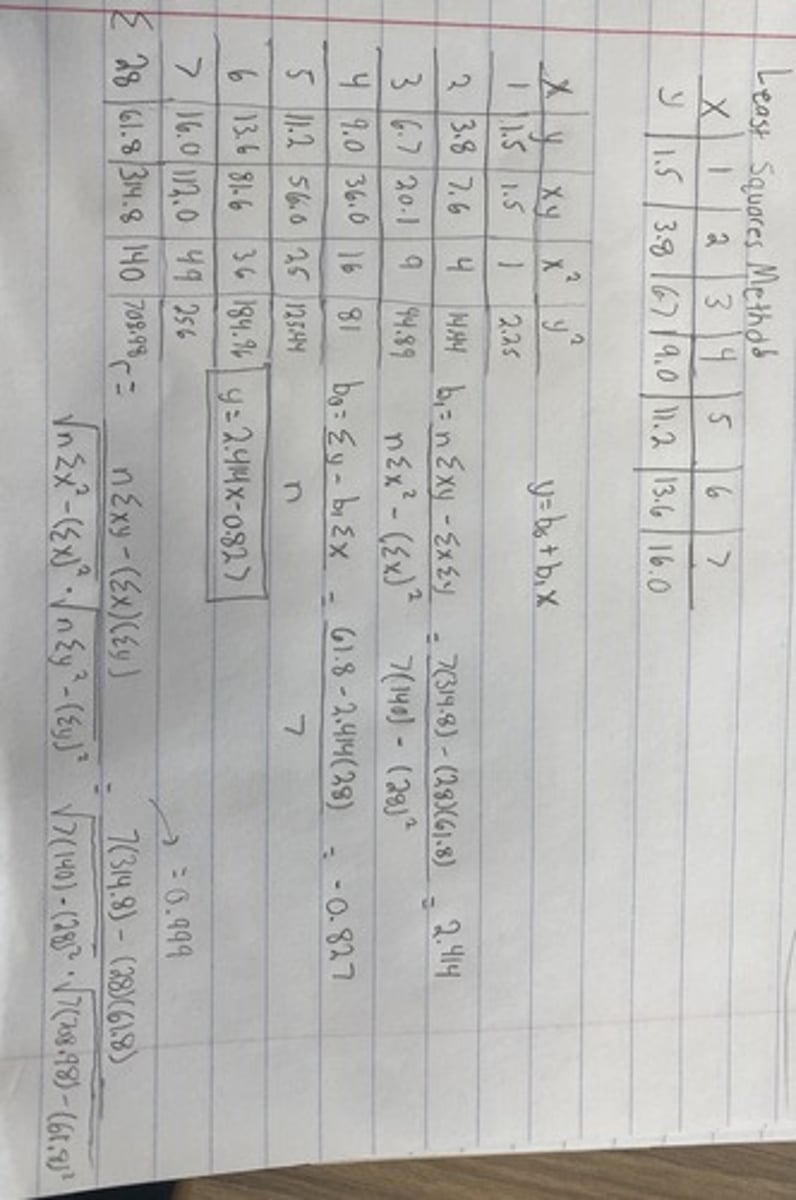 Least Squares Method
X | 1 | 2 | 3 | 4 | 5 | 6 | 7
y | 1.5 | 3.8 | 6.7 | 9.0 | 11.2 | 13.6 | 16.0
y = b₀ + b₁x
X | y | xy | x² | y²
1 | 1.5 | 1.5 | 1 | 2.25
2 | 3.8 | 7.6 | 4 | 14.44
3 | 6.7 | 20.1 | 9 | 44.89
4 | 9.0 | 36.0 | 16 | 81
5 | 11.2 | 56.0 | 25 | 125.44
6 | 13.6 | 81.6 | 36 | 184.96
7 | 16.0 | 112.0 | 49 | 256
Σ 28 | 61.8 | 314.8 | 140 | 708.98
b₁ = nΣxy - ΣxΣy = 7(314.8) - (28)(61.8) = 2.414
nΣx² - (Σx)² 7(140) - (28)²
b₀ = Σy - b₁Σx = 61.8 - 2.414(28) = -0.827
n 7
y = 2.414x - 0.827
r = nΣxy - (Σx)(Σy) = 7(314.8) - (28)(61.8) → = 0.999
√nΣx² - (Σx)² · √nΣy² - (Σy)² √7(140) - (28)² · √7(708.98) - (61.8)²